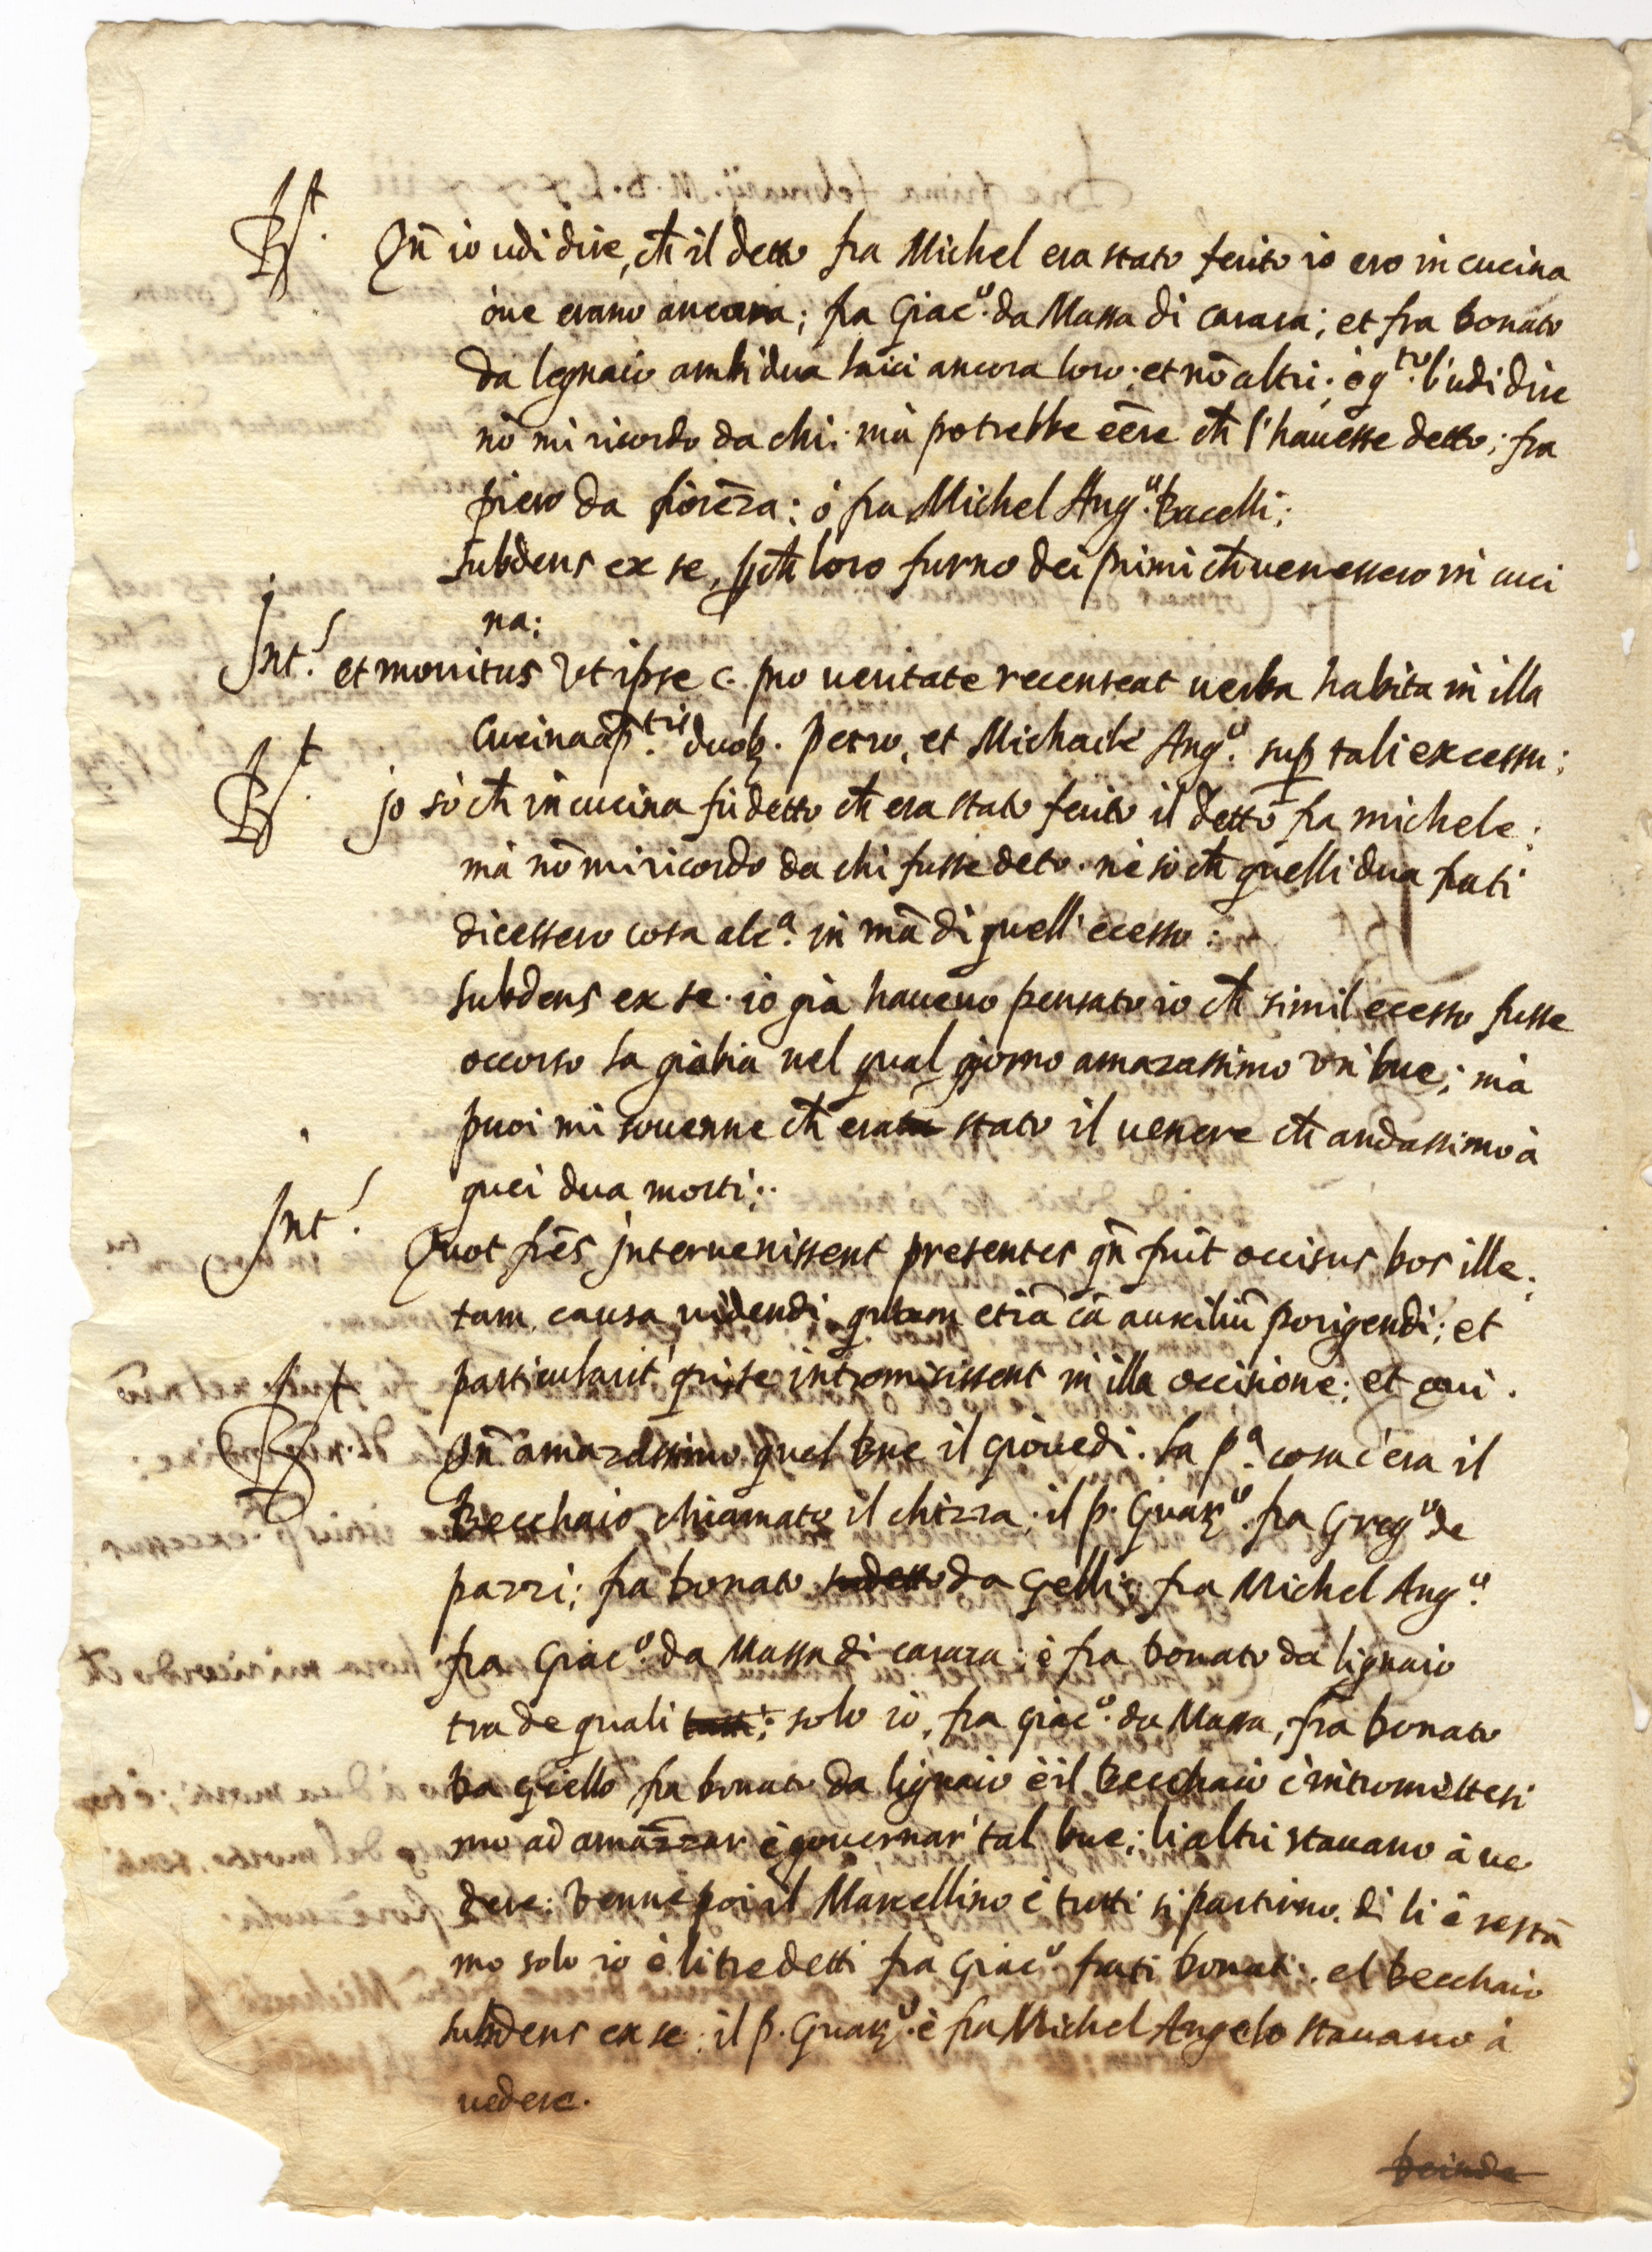 Rt. Qn̄ io udi dire, ch̄ il detto fra Michel era stato ferito io ero in cucina
oue erano ancora; fra Giac.º da Massa di carara; et fra bonato
da legnaio ambidua laici ancora loro; et nō altri; è q.to l'udi dire
nō mi ricordo da chi. mà potrebbe eēre ch̄ l'hauesse detto; fra
piero da fiorēza; ò fra Michel Ang.º Bacelli;
subdens ex se, ch̄ loro furno dei primi ch̄ uenessero in cuci
na;
Int.s et monitus Vt ipse c. pro ueritate recenseat uerba habita in illa
Cucina à p.tis duob. petro, et Michaele Ang.º sup tali excessu;
Rt. jo sò ch̄ in cucina fù detto ch̄ era stato ferito il detto fra michele;
mà nō mi ricordo da chi fusse deto. nè sò ch̄ quelli dua frati
dicessero cosa alc.a in mā di quell'ecesso;
subdens ex se. io già haueuo pensato io ch̄ simil ecesso fusse
occorso la giobia nel qual giorno amazassimo un bue; mà
puoi mi souenne ch̄ era stato il uenere ch̄ andassimo à
quei dua morti;.
Int.s Quot frēs interuenissent presentes qn̄ fuit occisus bos ille;
tam causa uidendi quam etiā cā auxiliū porigendi; et
particularit' qui se intromisissent in illa occisione; et qui.
Rt. Qn̄ amazassimo quel bue il giouedi. la p.a cosa c'era il
Becchaio chiamato il chizza. il p. Guar.º fra Greg.º de
pazzi; fra bonato sudetto da Gello; fra Michel Ang.º
fra Giac.º da Massa di carara; è fra bonato da lignaio
tra de quali tutti; solo io, fra giac.º da Massa, fra bonato
da giello fra bonato da lignaio è il Becchaio c'intromettesi
mo ad amazzar è gouernar' tal bue; li altri stauano à ue
dere; Venne poi il Marcellino è tutti si partirno. di li è restā
mo solo io è li tre detti fra Giac.º frati bonati. el becchaio
subdens ex se; il p. Guar.º è fra Michel Angelo stauano à
uedere.
deinde